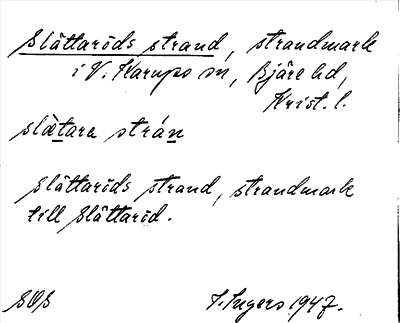 Slättaröds strand, strandmark
i V. Karups sn, Bjäre hd,
Krist. l.
slætara strán
Slättaröds strand, strandmark
till Slättaröd.
SOB
I. Ingers 1947.